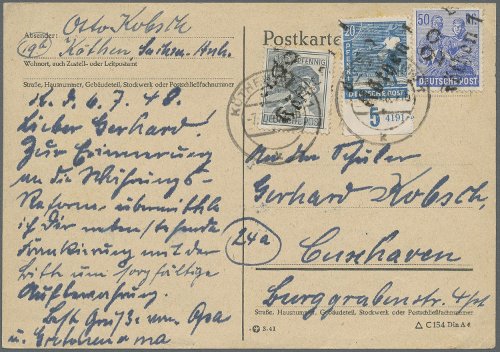 Otto Kobsch
Absender:
19b
Köthen, Sachsen-Anh.
Wohnort, auch Zustell- oder Leitpostamt
Straße, Hausnummer, Gebäudeteil, Stockwerk oder Postschließfachnummer
d. 6.7.48.
Lieber Gerhard!
Zur Erinnerung
an die Währungs-
Reform übermittle
ich Dir nebenstehende
Frankierung mit der
Bitte um sorgfältige
Aufbewahrung.
Gruß vom Opa
u. ma
Postkarte
PFENNIG
DEUTSCHE POST
20
DEUTSCHE POST
50
DEUTSCHE POST
5
4191
KÖTHEN
An den Schüler
Gerhard Kobsch,
24a
Cuxhaven
Burggrabenstr.
Straße, Hausnummer, Gebäudeteil, Stockwerk oder Postschließfachnummer
C 154 Din A 6